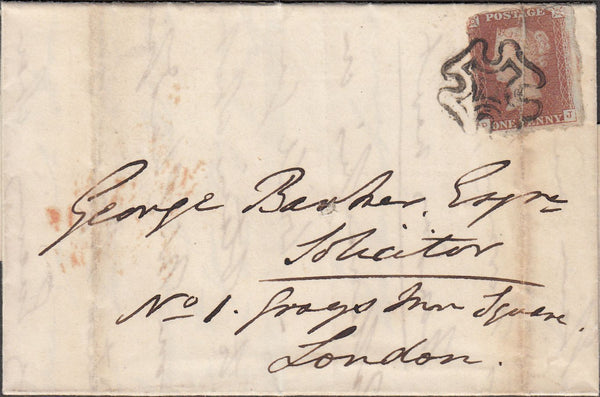 POSTAGE
ONE PENNY J
George Barker, Esqre
Solicitor
No 1. Grays Inn Square,
London.